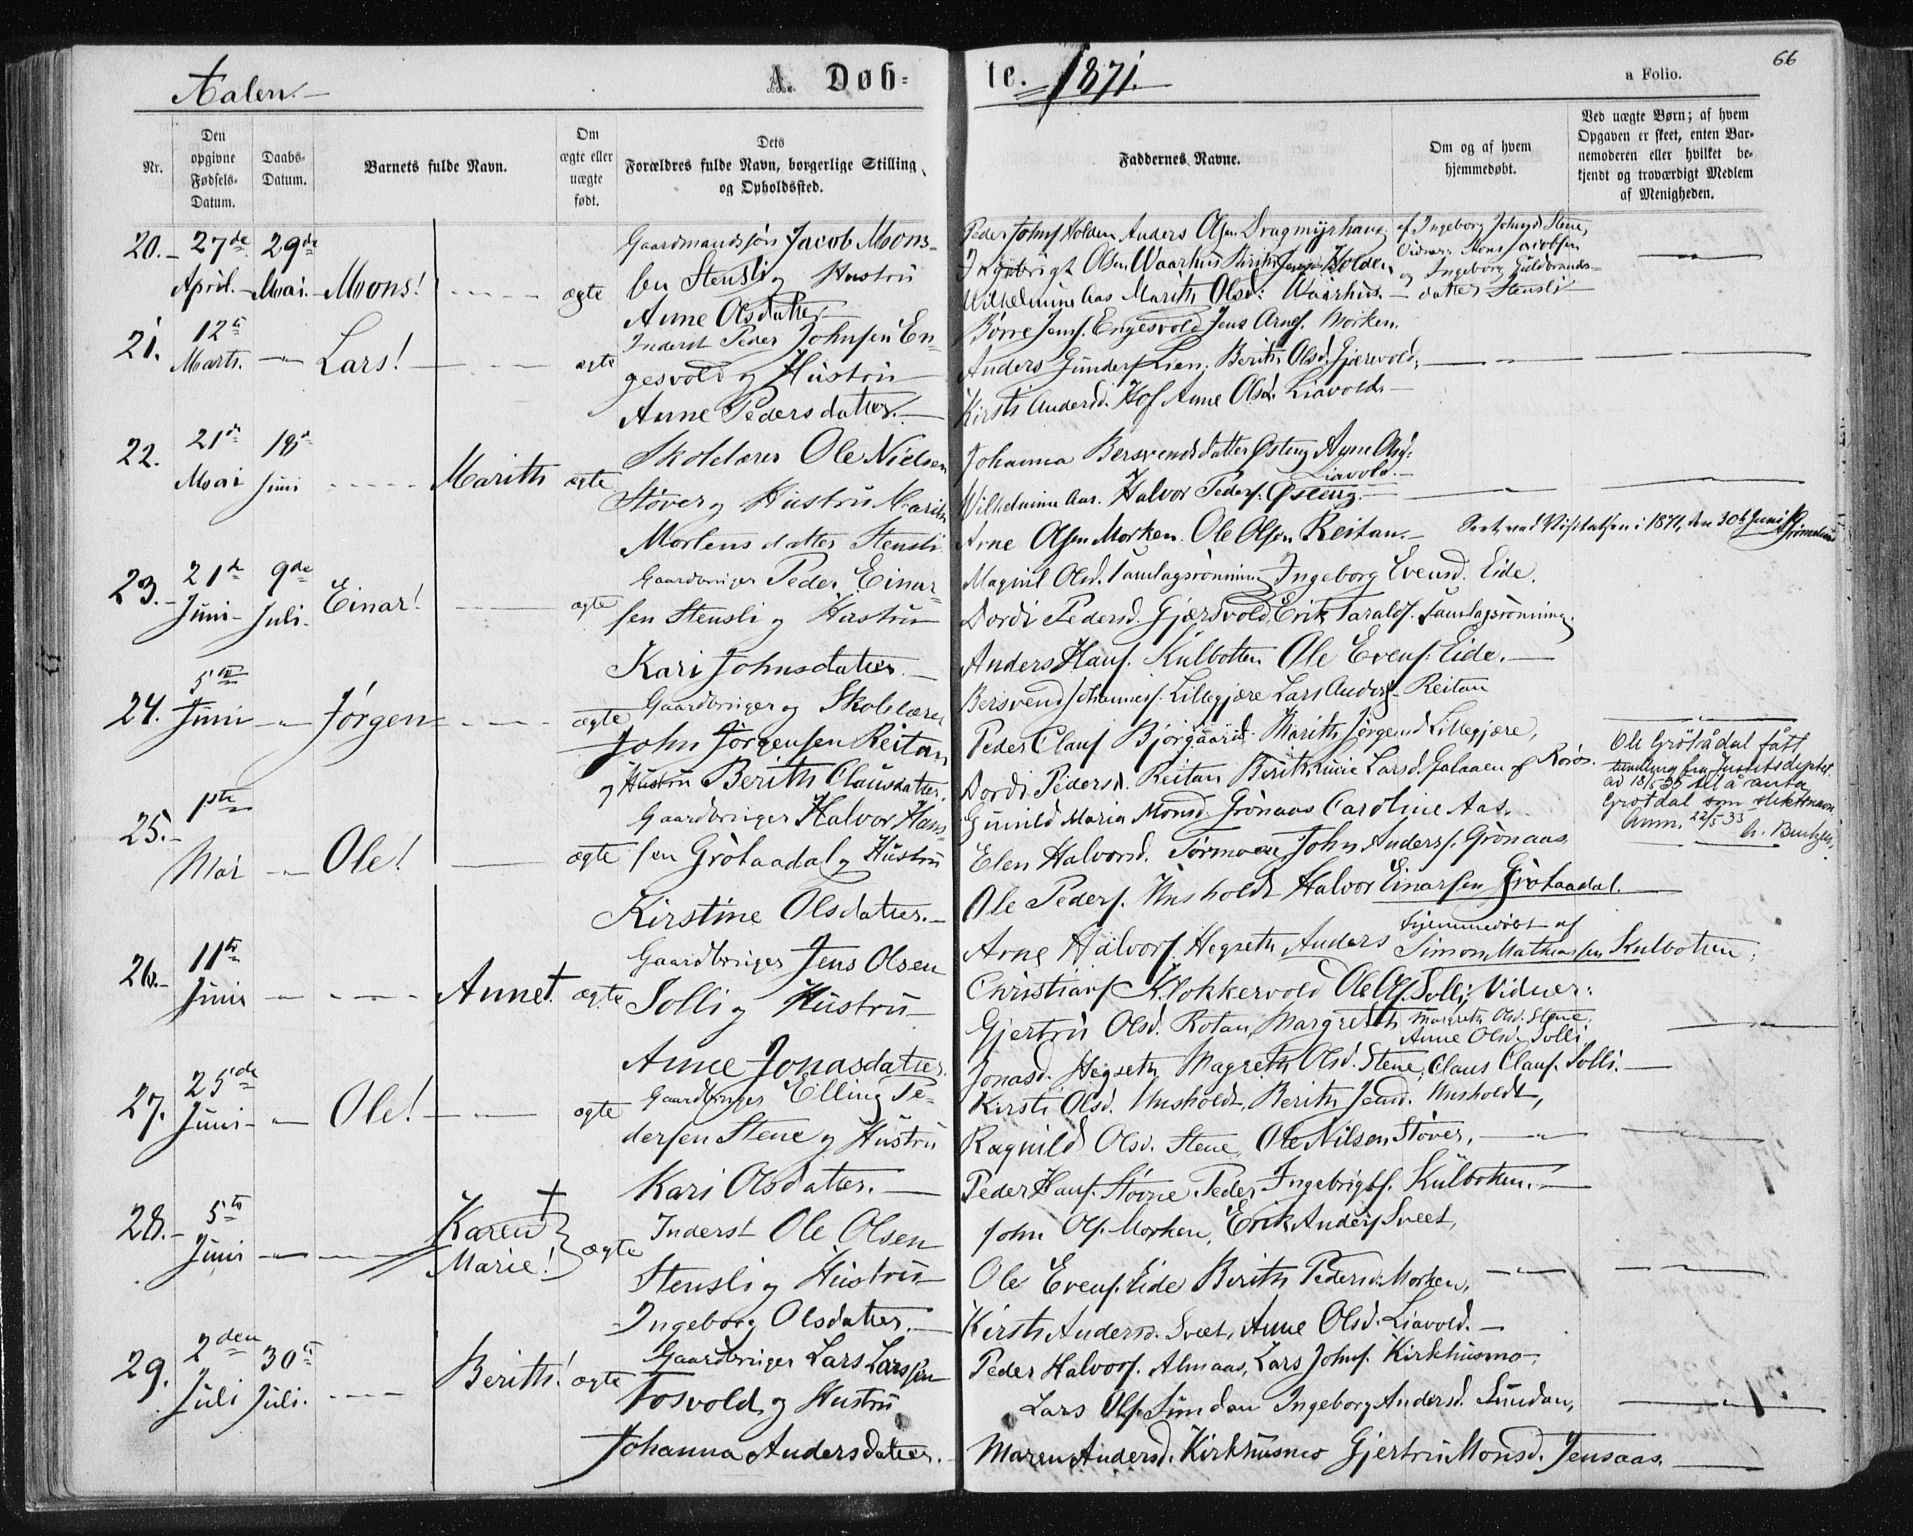 Aalen.
A. Døb-
te. 1871.
a Folio.
66
Nr.
Den
opgivne
Fødsels-
Datum.
Daabs-
Datum.
Barnets fulde Navn.
Om
ægte eller
uægte
født.
Dets
Forældres fulde Navn, borgerlige Stilling
og Opholdssted.
Faddernes Navne.
Om og af hvem
hjemmedøbt.
Ved uægte Børn; af hvem
Opgaven er skeet, enten Bar-
nemoderen eller hvilket be-
kjendt og troværdigt Medlem
af Menigheden.
20. 27de April. 29de Mai. Mons! ægte
Gaardmandssøn Jacob Mons-
sen Stensli og Hustru
Anne Olsdatter.
Peder Johns. Holden Anders Olsen Dragmyrhaug
Ingebrigt Olsen Waarhus Berith Holden
Wilhelmine Aas Marith Olsd. Waarhus.
af Ingeborg Johnsd. Stene,
Vidner: Mons Jacobsen
og Ingeborg Guldbrands-
datter Stensli
21. 12te Marts. Lars! ægte
Inderst Peder Johnsen En-
gesvold og Hustru
Anne Pedersdatter.
Børre Jens. Engesvold Jens Arnes. Morken.
Anders Gunders. Lien, Berith Olsd. Gjærvold,
Kirsti Andersd. Hof Anne Olsd. Liavold.
22. 21de Mai 18de Juni Marith ægte
Skolelærer Ole Nielsen
Støver og Hustru Marith
Mortensdatter Stensli
Johanna Bersvendsdatter Østeng Anne Olsd.
Liavold.
Wilhelmine Aas. Halvor Peders. Østeng.
Arne Olsen Morken. Ole Olsen Reitan.
Seet ved Visitatsen i 1871, den 30te Juni
23. 21de Juni 9de Juli Einar! ægte
Gaardbruger Peder Einar-
sen Stensli og Hustru
Kari Johnsdatter.
Magnil Olsd. Tamlagsrønning Ingeborg Evensd. Eide.
Dordi Pedersd. Gjærsvold, Erik Taralds. Tamlagsrønning.
Anders Hans. Kulbotten Ole Evens. Eide.
24. 5te Juni Jørgen ægte
Gaardbruger og Skolelærer
John Jørgensen Reitan
og Hustru Berith Clausdatter.
Bersvend Johannes. Lillegjære Lars Anders. Reitan
Peder Claus. Bjørgaard. Marith Jørgensd. Lillegjære,
Dordi Pedersd. Reitan Berith Lucie Larsd. Galaaen af Røros.
25. 1ste Mai Ole! ægte
Gaardbruger Halvor Hans-
sen Grøtaadal og Hustru
Kirstine Olsdatter.
Gunild Maria Monsd. Grønaas Caroline Aas.
Elen Halvorsd. Tørmoen John Anders. Grønaas
Ole Peders. Unsholdt Halvor Einarsen Grøtaadal.
Ole Grøtådal fått
fra Justitsdeptet
ad 18/5 33 til å anta
Grøtdal som slektsnavn
Anm. 22/5 33
26. 11te Juni Anne! † ægte
Gaardbruger Jens Olsen
Solli og Hustru
Anne Jonasdatter.
Arne Halvors. Hegseth Anders
Christians. Klokkervold Ole Ols. Solli.
Gjertru Olsd. Rotan, Margreth
Jonasd. Hegseth Magreth Olsd. Stene, Claus Claus. Solli.
Hjemmedøbt af
Simon Mathiassen Kulbotten.
Vidner:
Margreth Olsd. Stene.
Anne Olsd. Solli
27. 25de Juni Ole! ægte
Gaardbruger Elling Pe-
dersen Stene og Hustru
Kari Olsdatter.
Kirsti Olsd. Unsholdt, Berith Jensd. Unsholdt,
Ragnild Olsd. Stene, Ole Nilsen Støver,
Peder Hans. Støvne Peder Ingebrigts. Kulbotten.
28. 5te Juni Karen † Marie! ægte
Inderst Ole Olsen
Stensli og Hustru
Ingeborg Olsdatter.
John Ols. Morken, Erik Anders. Sveet,
Ole Evens. Eide Berith Pedersd. Morken,
Kirsti Andersd. Sveet, Anne Olsd. Liavold.
29. 2den Juli 30te Juli. Berith! ægte
Gaardbruger Lars Larssen
Fosvold og Hustru
Johanna Andersdatter.
Peder Halvors. Almaas, Lars Johns. Kirkhusmo,
Lars Ols. Sundan Ingeborg Andersd. Sundan,
Maren Andersd. Kirkhusmo Gjertru Monsd. Jensaas.